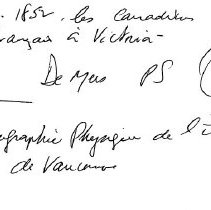 . 1852. les Canadiens
rançais à Victoria -
De Mers PS (
ographie Physique de l'î
de Vancouver